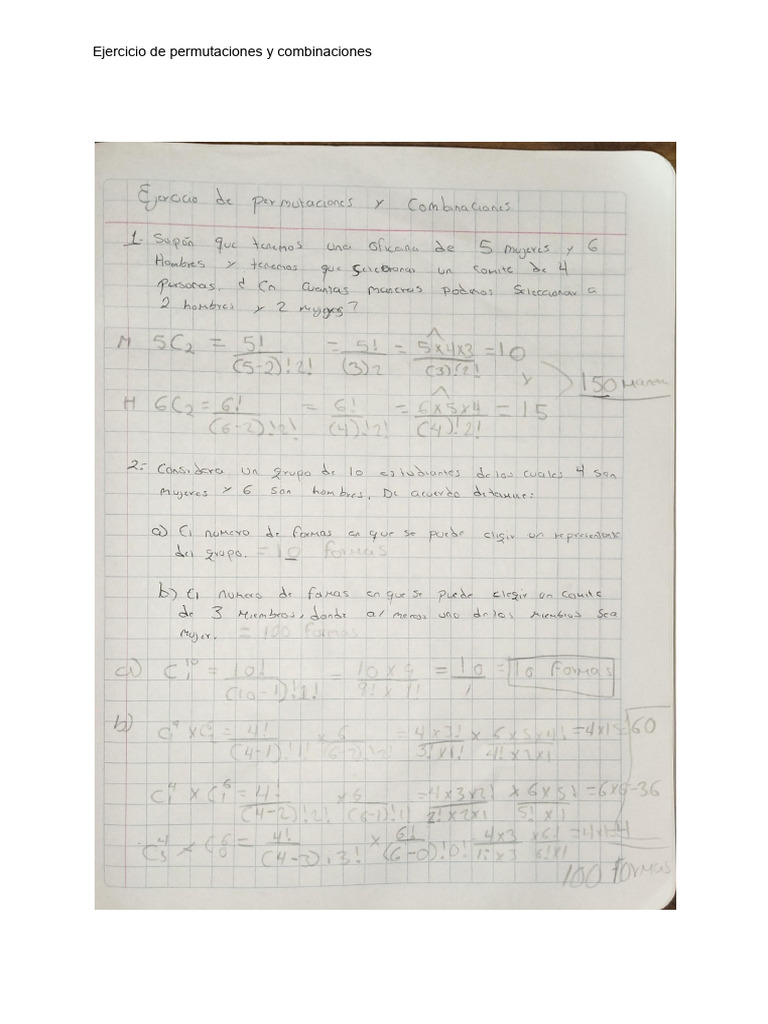 Ejercicio de permutaciones y combinaciones
Ejercicio de permutaciones y combinaciones
1. Supón que tenemos una oficina de 5 mujeres y 6
Hombres y tenemos que seleccionar un comite de 4
personas, ¿ En cuentas maneras podemos seleccionar a
2 hombres y 2 mujeres?
M 5C2 = 5!/(5-2)!2! = 5!/(3)2 = 5x4x3/(3)!2! = 10
y 150 maneras
H 6C2 = 6!/(6-2)!2! = 6!/(4)!2! = 6x5x4/(4)!2! = 15
2.- Considera un grupo de 10 estudiantes de los cuales 4 son
mujeres y 6 son hombres. De acuerdo detamine:
a) El numero de formas en que se puede eligir un representante
del grupo. = 10 formas
b) El numero de formas en que se puede elegir un comite
de 3 miembros, donde al menos uno de los miembros sea
mujer. = 100 formas
a) C₁¹⁰ = 10!/(10-1)!1! = 10x9/9!x1! = 10/1 = 10 formas
b) = 4!/(4-1)!1! x 6/(6-2)!2! = 4x3!/3!x1! x 6x5x4!/4!x2x1 = 4x15 = 60
C⁴ x C₁⁶ = 4!/(4-2)!2! x 6/(6-1)!1! = 4x3x2!/2!x2x1 x 6x5!/5!x1 = 6x6=36
C₃⁴ x C₀⁶ = 4!/(4-3).3! x 6!/(6-0)!0! = 4x3/1!x3 x6!/6!x1 = 4x1=4
100 formas